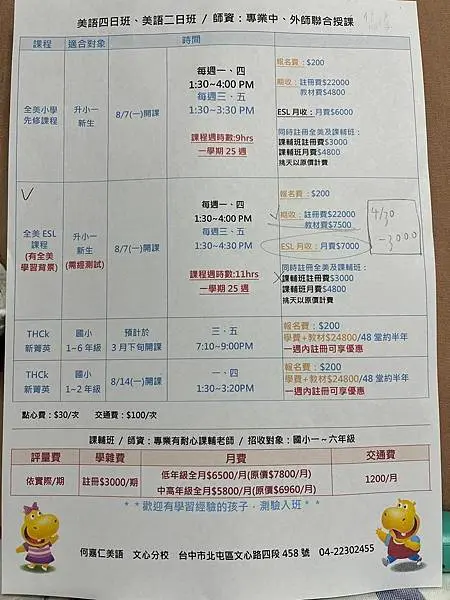 美語四日班、美語二日班 / 師資：專業中、外師聯合授課
課程 適合對象 時間
全美小學
先修課程
升小一
新生
8/7(一)開課
每週一、四
1:30~4:00 PM
每週三、五
1:30~3:30 PM
課程週時數:9hrs
一學期 25 週
報名費：$200
期收：註冊費$22000
教材費$4800
ESL 月收：月費$6000
同時註冊全美及課輔班:
課輔班註冊費$3000
課輔班月費$4800
挑天以原價計費
全美 ESL
課程
(有全美
學習背景)
升小一
新生
(需經測試)
8/7(一)開課
每週一、四
1:30~4:00 PM
每週三、五
1:30~4:30 PM
課程週時數:11hrs
一學期 25 週
報名費：$200
期收：註冊費$22000
教材費$7500
ESL 月收：月費$7000
同時註冊全美及課輔班:
課輔班註冊費$3000
課輔班月費$4800
挑天以原價計費
4/30
-3000
THCk
新菁英
國小
1~6 年級
預計於
3 月下旬開課
三．五
7:10~9:00PM
報名費：$200
學費+教材$24800/48 堂約半年
一週內註冊可享優惠
THCk
新菁英
國小
1~2 年級
8/14(一)開課
一．四
1:30~3:20PM
報名費：$200
學費+教材$24800/48 堂約半年
一週內註冊可享優惠
點心費：$30/次 交通費：$100/次
課輔班 / 師資：專業有耐心課輔老師 / 招收對象：國小一～六年級
評量費 學雜費 月費 交通費
依實際/期 註冊$3000/期 低年級全月$6500/月(原價$7800/月) 1200/月
中高年級全月$5800/月(原價$6960/月)
**歡迎有學習經驗的孩子，測驗入班**
何嘉仁美語 文心分校 台中市北屯區文心路四段 458 號 04-22302455